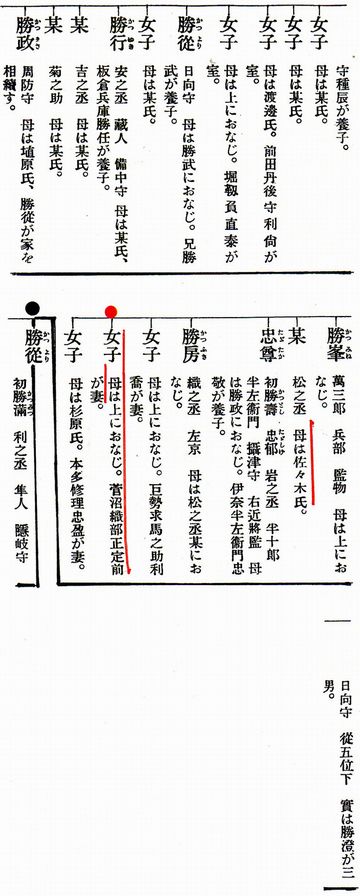 守種辰が養子。
女子
母は某氏。
女子
母は某氏。
女子
母は渡邊氏。前田丹後守利尙が
室。
女子
母は上におなじ。堀靱負直泰が
室。
勝從 かつより
日向守 母は勝武におなじ。兄勝
武が養子。
女子
母は某氏。
勝行 かつゆき
安之丞 藏人 備中守 母は某氏、
板倉兵庫勝任が養子。
某
吉之丞 母は某氏。
某
菊之助 母は某氏。
勝政 かつまさ
周防守 母は埴原氏、勝從が家を
相續す。
勝峯 かつみね
萬三郎 兵部 監物 母は上にお
なじ。
某
松之丞 母は佐々木氏。
忠尊 たゞたか
初勝壽 忠郁 岩之丞 半十郎
半左衞門 攝津守 右近將監 母
は勝政におなじ。伊奈半左衞門忠
敬が養子。
勝房 かつふさ
織之丞 左京 母は松之丞某にお
なじ。
女子
母は上におなじ。巨勢求馬之助利
喬が妻。
女子
母は上におなじ。菅沼織部正定前
が妻。
女子
母は杉原氏。本多修理忠盈が妻。
勝從 かつより
初勝滿 利之丞 隼人 隱岐守
日向守 從五位下 實は勝澄が三
男。